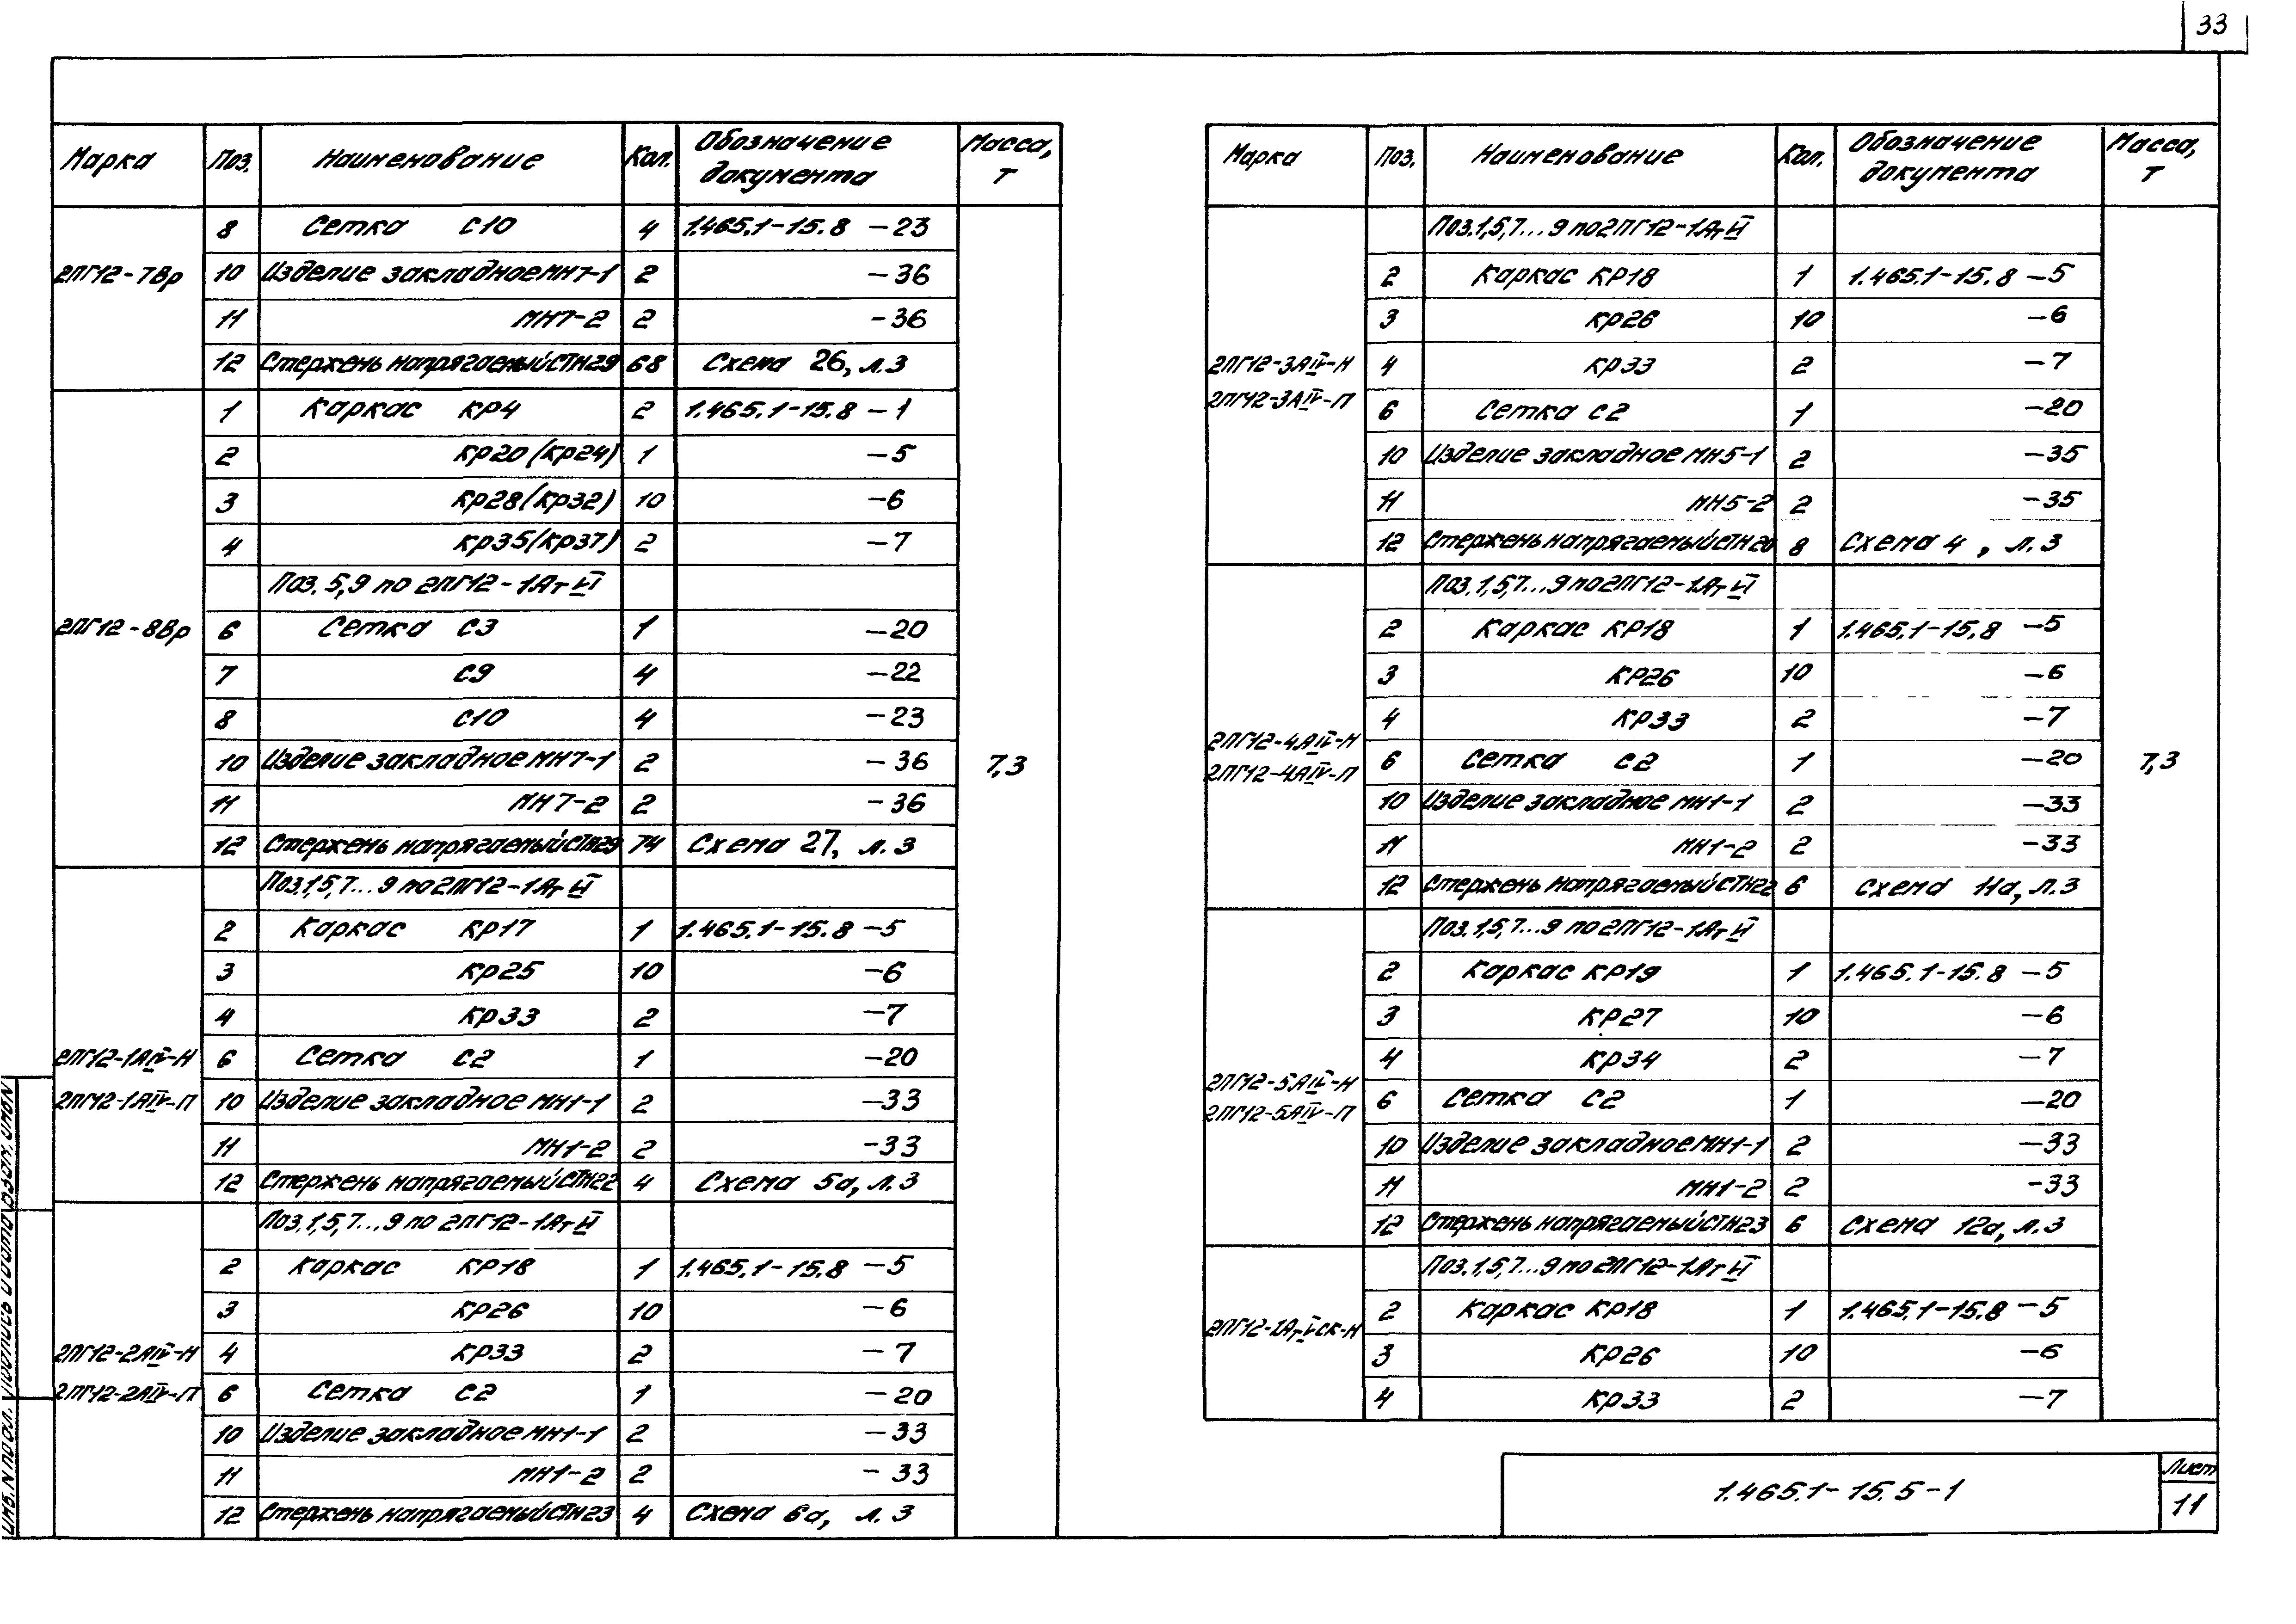 33
Марка Поз. Наименование Кол. Обозначение документа Масса, т
2ПГ12-7Вр
8 Сетка С10 4 1.465.1-15.8 -23
10 Изделие закладное МН7-1 2 -36
11 МН7-2 2 -36
12 Стержень напрягаемый СТН29 68 Схема 26, л.3
2ПГ12-8Вр
1 Каркас КР4 2 1.465.1-15.8 -1
2 КР20 (КР24) 1 -5
3 КР28 (КР32) 10 -6
4 КР35 (КР37) 2 -7
Поз. 5,9 по 2ПГ12-1АтVI
6 Сетка С3 1 -20
7 С9 4 -22
8 С10 4 -23
10 Изделие закладное МН7-1 2 -36
11 МН7-2 2 -36
12 Стержень напрягаемый СТН29 74 Схема 27, л.3
7,3
2ПГ12-1АIV-Н
2ПГ12-1АIV-П
Поз.1,5,7...9 по 2ПГ12-1АтVI
2 Каркас КР17 1 1.465.1-15.8 -5
3 КР25 10 -6
4 КР33 2 -7
6 Сетка С2 1 -20
10 Изделие закладное МН1-1 2 -33
11 МН1-2 2 -33
12 Стержень напрягаемый СТН22 4 Схема 5а, л.3
2ПГ12-2АIV-Н
2ПГ12-2АIV-П
Поз.1,5,7...9 по 2ПГ12-1АтVI
2 Каркас КР18 1 1.465.1-15.8 -5
3 КР26 10 -6
4 КР33 2 -7
6 Сетка С2 1 -20
10 Изделие закладное МН1-1 2 -33
11 МН1-2 2 -33
12 Стержень напрягаемый СТН23 4 Схема 6а, л.3
Марка Поз. Наименование Кол. Обозначение документа Масса, т
2ПГ12-3АIV-Н
2ПГ12-3АIV-П
Поз.1,5,7...9 по 2ПГ12-1АтVI
2 Каркас КР18 1 1.465.1-15.8 -5
3 КР26 10 -6
4 КР33 2 -7
6 Сетка С2 1 -20
10 Изделие закладное МН5-1 2 -35
11 МН5-2 2 -35
12 Стержень напрягаемый СТН20 8 Схема 4, л.3
2ПГ12-4АIV-Н
2ПГ12-4АIV-П
Поз.1,5,7...9 по 2ПГ12-1АтVI
2 Каркас КР18 1 1.465.1-15.8 -5
3 КР26 10 -6
4 КР33 2 -7
6 Сетка С2 1 -20
10 Изделие закладное МН1-1 2 -33
11 МН1-2 2 -33
12 Стержень напрягаемый СТН22 6 Схема 11а, л.3
7,3
2ПГ12-5АIV-Н
2ПГ12-5АIV-П
Поз.1,5,7...9 по 2ПГ12-1АтVI
2 Каркас КР19 1 1.465.1-15.8 -5
3 КР27 10 -6
4 КР34 2 -7
6 Сетка С2 1 -20
10 Изделие закладное МН1-1 2 -33
11 МН1-2 2 -33
12 Стержень напрягаемый СТН23 6 Схема 12а, л.3
2ПГ12-1АтVСК-Н
Поз.1,5,7...9 по 2ПГ12-1АтVI
2 Каркас КР18 1 1.465.1-15.8 -5
3 КР26 10 -6
4 КР33 2 -7
1.465.1-15.5-1
Лист
11
Инв. N подл. Подпись и дата Взам. инв N